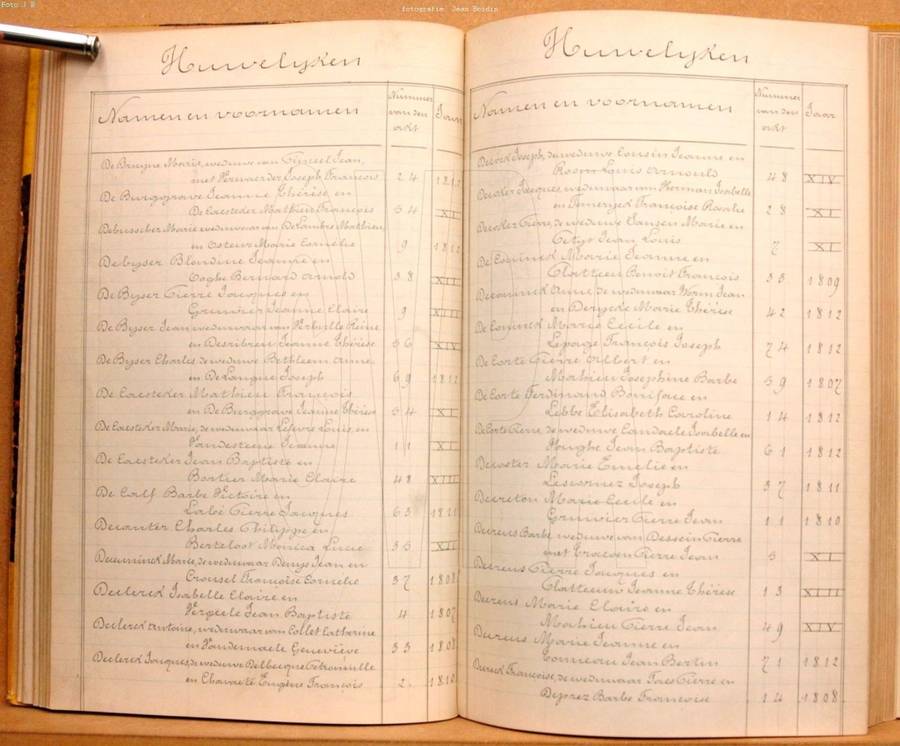 Foto J 8
fotografie Jean Boidin
Huwelyken
Namen en voornamen
Nummer van den akt
De Bruyne Marie, weduwe van Gyseel Jean,
met Verwaerder Joseph François 24 1812
De Burggrave Jeanne Thérèse en
De Caesteker Mathieu François 54 XI
Debusscher Marie weduwe van De Lambre Mathieu
en Osteux Marie Cornelis 9 1812
De Byser Blondine Jeanne en
Coghe Bernard Arnold 38 XII
De Byser Pierre Jacques en
Grunier Jeanne Claire 9 XIII
De Byser Jean weduwaar van Verhulle Reine
en Desribren Jeanne Thérèse 56 XIV
De Byser Charles de weduwe Bathleem Anne
en De Langue Joseph 69 1812
De Caesteker Mathieu François
en De Burggrave Jeanne Thérèse 54 XI
De Caesteker Marie, de weduwaar Lefevre Louis, en
Vandesteene Jeanne 11 XI
De Caesteker Jean Baptiste en
Bortier Marie Claire 48 XIII
De Calf Barbe Victoire en
Labé Pierre Jacques 63 1811
Decanter Charles Philippe en
Berteloot Monica Lucie 35 XII
Deceuninck Marie, de weduwaar Denys Jean en
Crousel Françoise Cornelie 37 1808
Declerck Isabelle Claire en
Vergeele Jean Baptiste 4 1807
Declerck Antoine, weduwaar van Collet Catherine
en Vandemaele Geneviève 33 1808
Declerck Jacques, de weduwe Delbecque Petronnille
en Chavaete Eugène François 2 1810
Huwelyken
Namen en voornamen
Nummer van den akt
Jaar
Joseph, de weduwe Cousin Jeanne en
Rosin Louis Arnould 48 XIV
Jacques weduwaar van Herman Isabelle
en Temeryck Françoise Rosalie 28 XI
de weduwe Jansen Marie en
Jean Louis 7 XI
De Coninck Marie Jeanne en
Clatteeu Benoit François 33 1809
Deconinck Anne, de weduwaar Worm Jean
en Derycke Marie Thérèse 42 1812
De Coninck Marie Cecile en
Lepage François Joseph 74 1812
De Corte Pierre Albert en
Mahieu Josephine Barbe 59 1807
De Corte Ferdinand Boniface en
Lebbe Elisabeth Caroline 14 1812
De Corte Pierre de weduwe Candaele Isabelle en
Vanghe Jean Baptiste 61 1812
Decoster Marie Emelie en
Lescornez Joseph 37 1811
Decreton Marie Cecile en
Grunier Pierre Jean 11 1810
Decreus Barbe weduwe van Dessein Pierre
met Croesen Pierre Jean 5 XI
Decreus Pierre Jacques en
Clatteeuw Jeanne Thérèse 13 XIII
Decreus Marie Claire en
Mahieu Pierre Jean 49 XIV
Decreus Marie Jeanne en
Conneau Jean Bertin 71 1812
Decreus Françoise, de weduwaar Joos Pierre en
Deprez Barbe Françoise 14 1808